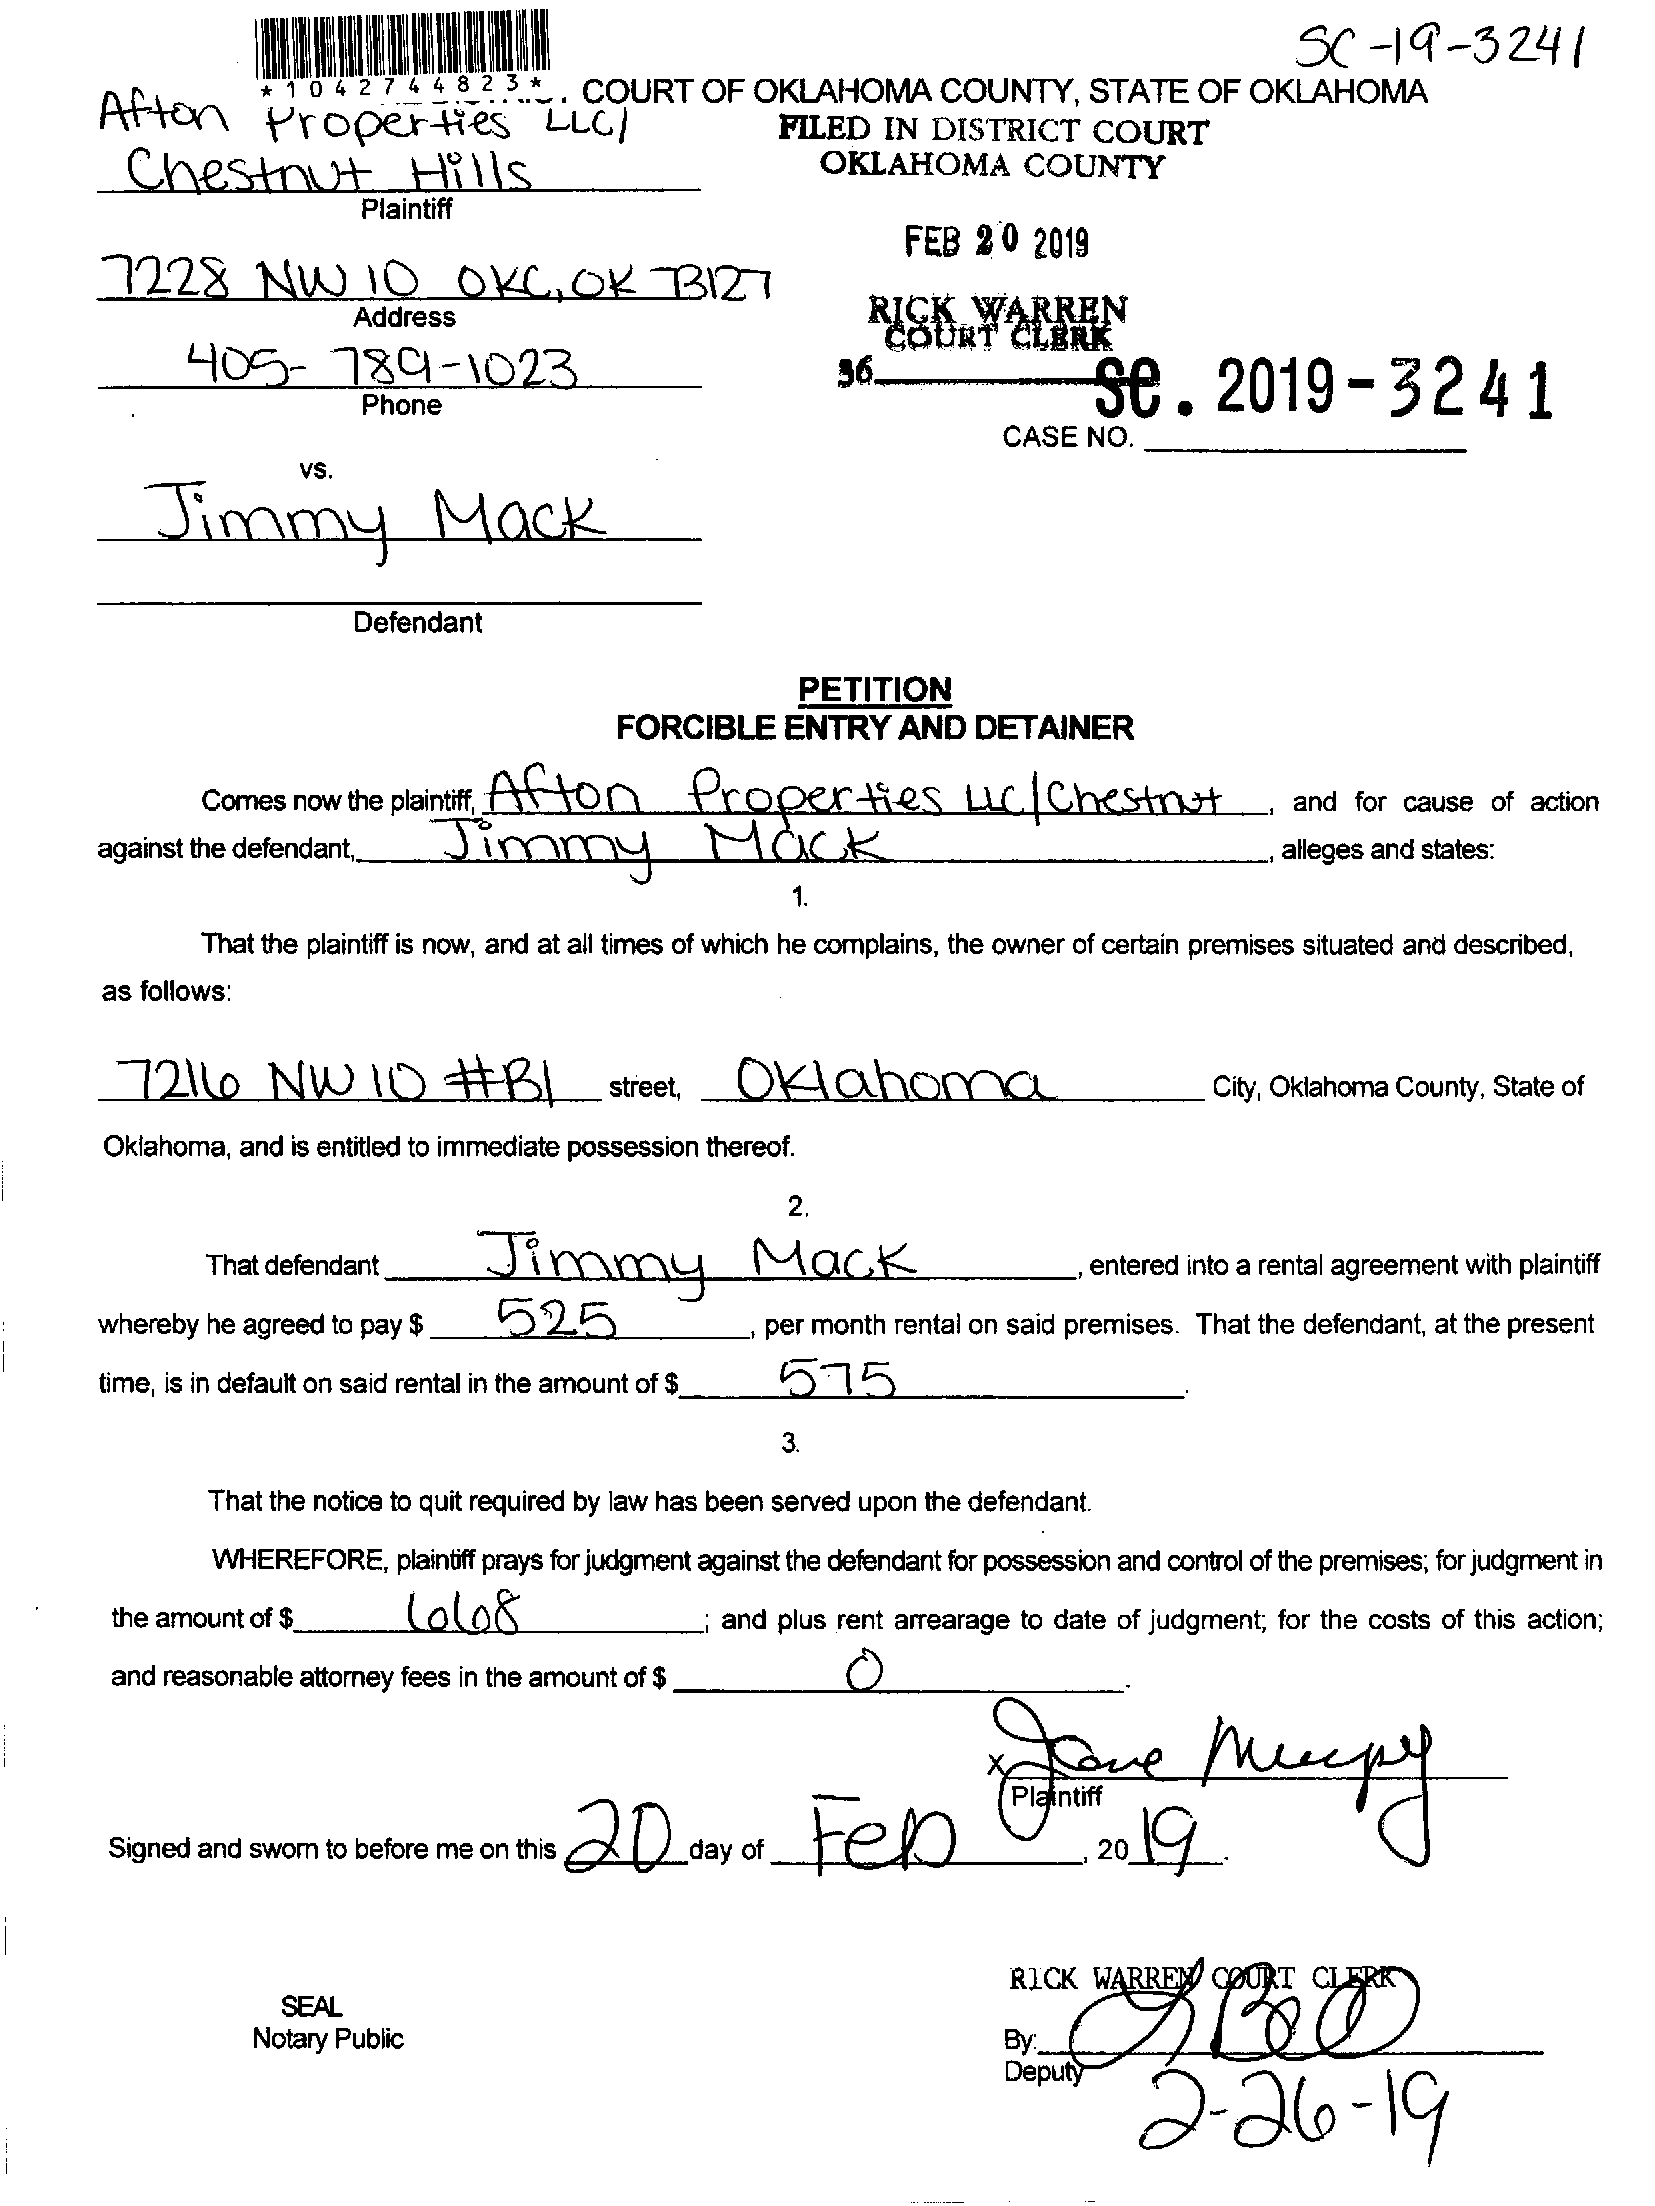 SC-19-3241
*1042744823*
COURT OF OKLAHOMA COUNTY, STATE OF OKLAHOMA
Afton Properties LLC/
FILED IN DISTRICT COURT
OKLAHOMA COUNTY
Chestnut Hills
Plaintiff
FEB 20 2019
7228 NW 10 OKC, OK 73127
Address
RICK WARREN
COURT CLERK
405-789-1023
36
SC. 2019-3241
Phone
CASE NO.
vs.
Jimmy Mack
Defendant
PETITION
FORCIBLE ENTRY AND DETAINER
Comes now the plaintiff, Afton Properties LLC/Chestnut, and for cause of action
against the defendant, Jimmy Mack, alleges and states:
1.
That the plaintiff is now, and at all times of which he complains, the owner of certain premises situated and described,
as follows:
7216 NW 10 #B1 street, Oklahoma City, Oklahoma County, State of
Oklahoma, and is entitled to immediate possession thereof.
2.
That defendant Jimmy Mack, entered into a rental agreement with plaintiff
whereby he agreed to pay $ 525, per month rental on said premises. That the defendant, at the present
time, is in default on said rental in the amount of $ 575.
3.
That the notice to quit required by law has been served upon the defendant.
WHEREFORE, plaintiff prays for judgment against the defendant for possession and control of the premises; for judgment in
the amount of $ 668; and plus rent arrearage to date of judgment; for the costs of this action;
and reasonable attorney fees in the amount of $ 0.
x
Plaintiff
Signed and sworn to before me on this 20 day of Feb, 2019.
RICK WARREN COURT CLERK
SEAL
Notary Public
By:
Deputy
2-26-19